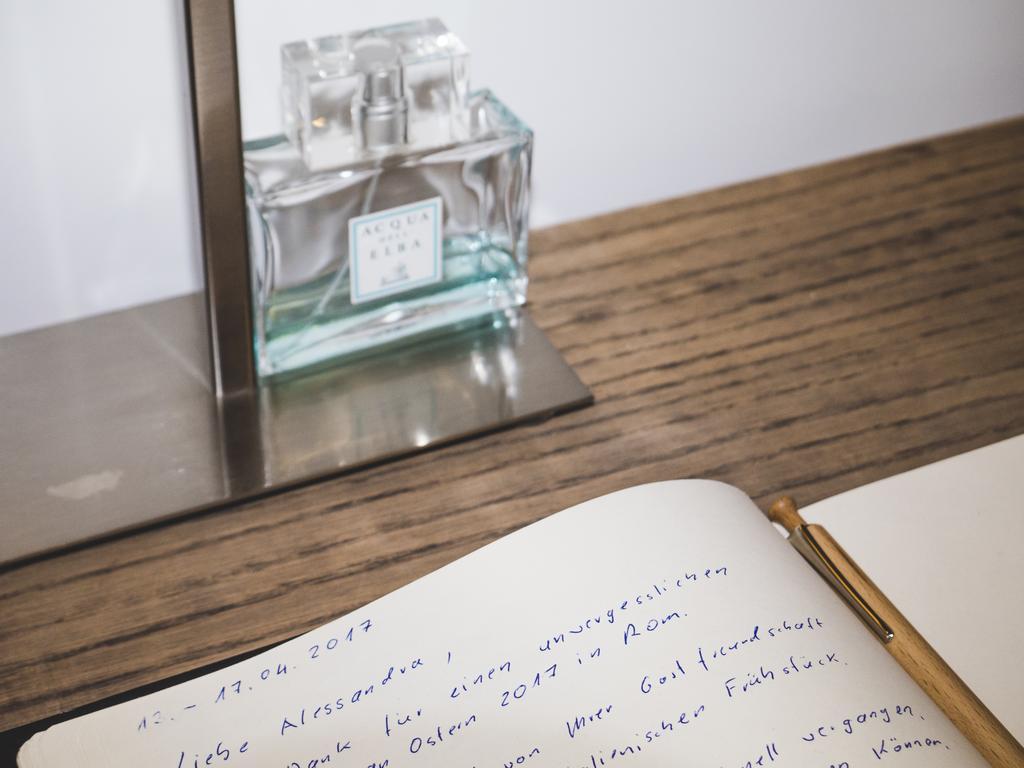 ACQUA
DELL'
ELBA
12. - 17.04. 2017
Liebe Alessandra,
Dank für einen unvergesslichen
an Ostern 2017 in Rom.
von Ihrer Gastfreundschaft
Frühstück.
vergangen.
Können.